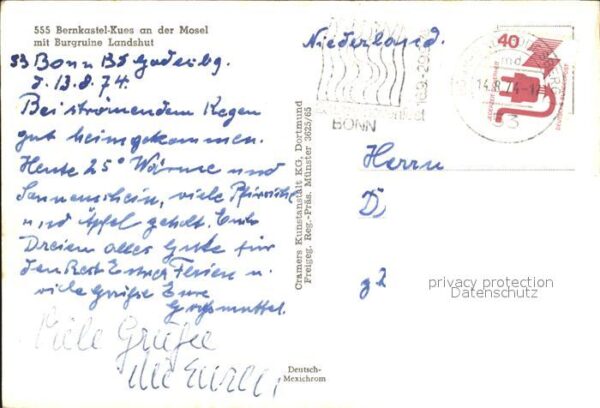 555 Bernkastel-Kues an der Mosel
mit Burgruine Landshut
53 Bonn Bd Godesbg.
d. 13.8.74.
Bei strömendem Regen
gut heimgekommen.
Heute 25° Wärme und
Sonnenschein, viele Pfirsiche
und Äpfel geholt. Euch
Dreien alles Gute für
den Rest Eurer Ferien u.
viele Grüße Eure
Großmutter.
Viele Grüße
Deutsch-
Mexichrom
Cramers Kunstanstalt KG, Dortmund
Freigeg. Reg.-Präs. Münster 3625/65
Niederland.
BONN
40
14.8.74
53
Herrn
D
g2
privacy protection
Datenschutz